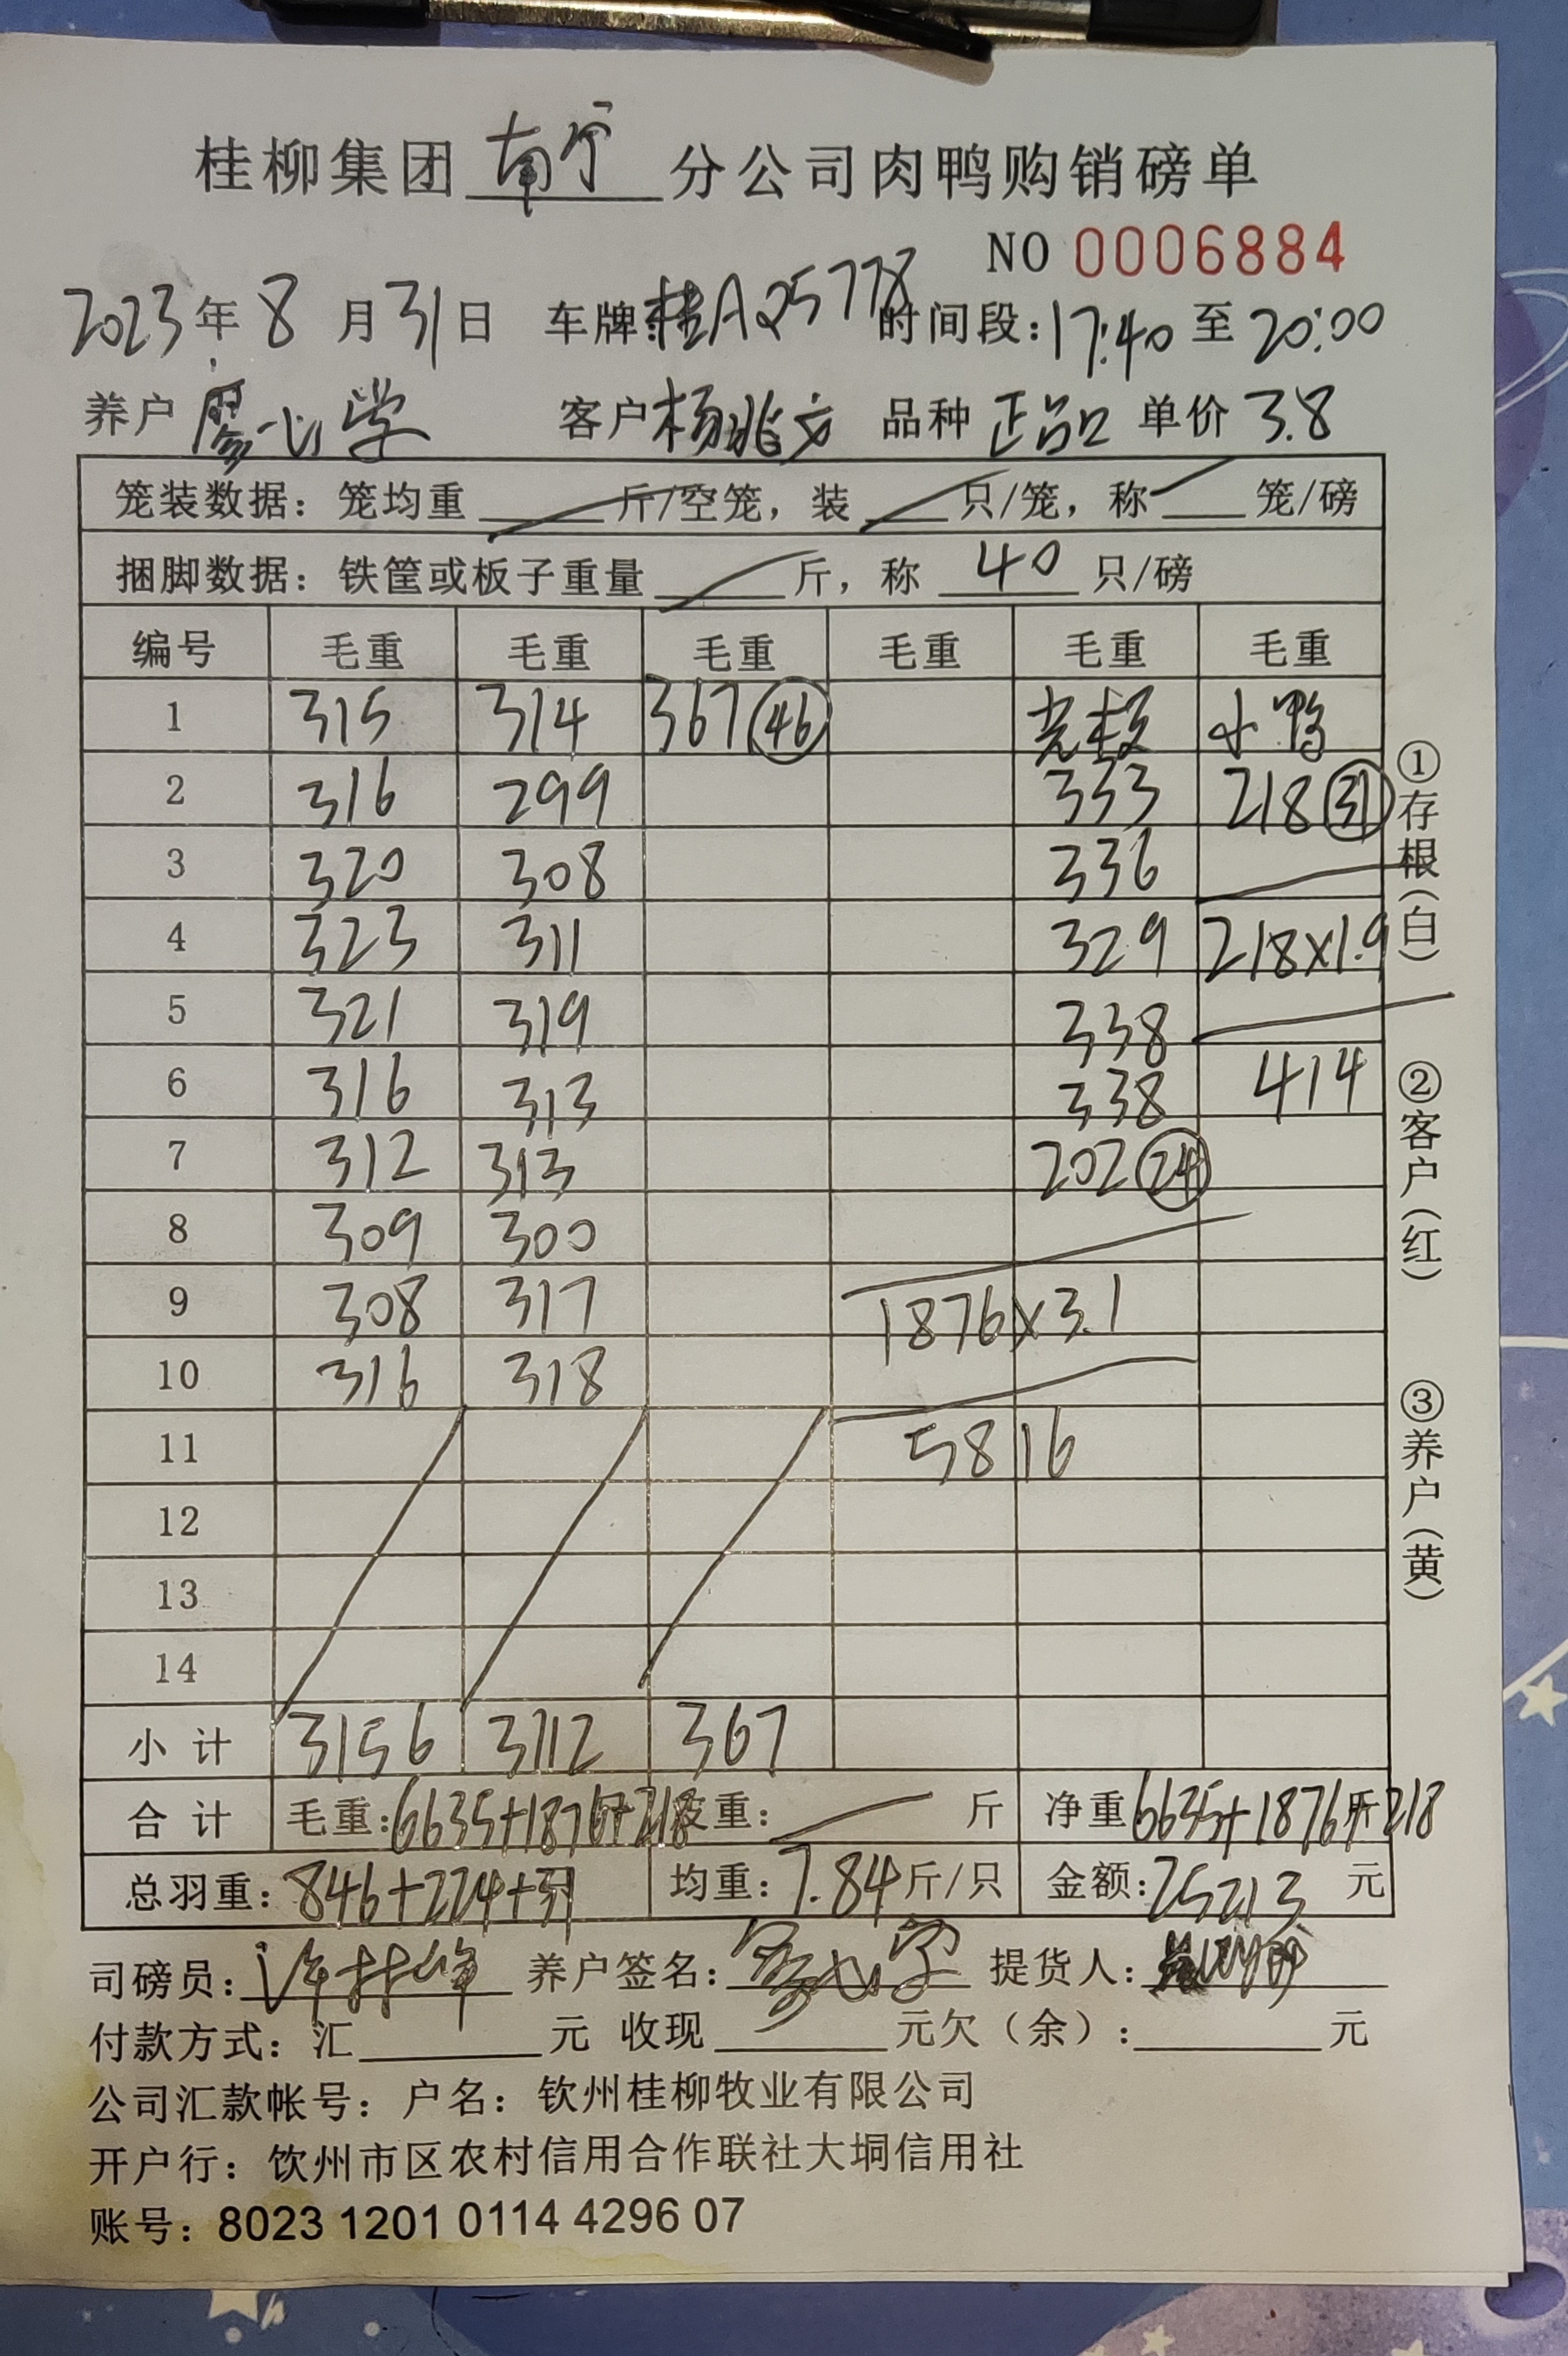 桂柳集团 南宁 分公司肉鸭购销磅单
NO 0006884
2023年8月31日 车牌:桂AQ5778 时间段:17:40至20:00
养户 廖 学 客户 杨兆方 品种 正品 单价 3.8
笼装数据: 笼均重 斤/空笼, 装 只/笼, 称 笼/磅
捆脚数据: 铁筐或板子重量 斤, 称 40 只/磅
编号 毛重 毛重 毛重 毛重 毛重 毛重
1 315 314 367 46 小鸭
2 316 299 333 218 31
3 320 308 336
4 323 311 329 218×1.9
5 321 319 338
6 316 313 338 414
7 312 313 202 24
8 309 300
9 308 317 1876×3.1
10 316 318
11 5816
12
13
14
小计 3156 3112 367
合计 毛重:6635+1876+218 皮重: 斤 净重 6635+1876+218
总羽重: 846+224+31 均重: 7.84 斤/只 金额: 25213 元
司磅员: 养户签名: 提货人:
付款方式: 汇 元 收现 元欠(余): 元
公司汇款帐号: 户名: 钦州桂柳牧业有限公司
开户行: 饮州市区农村信用合作联社大垌信用社
账号: 8023 1201 0114 4296 07
①存根(白)
②客户(红)
③养户(黄)